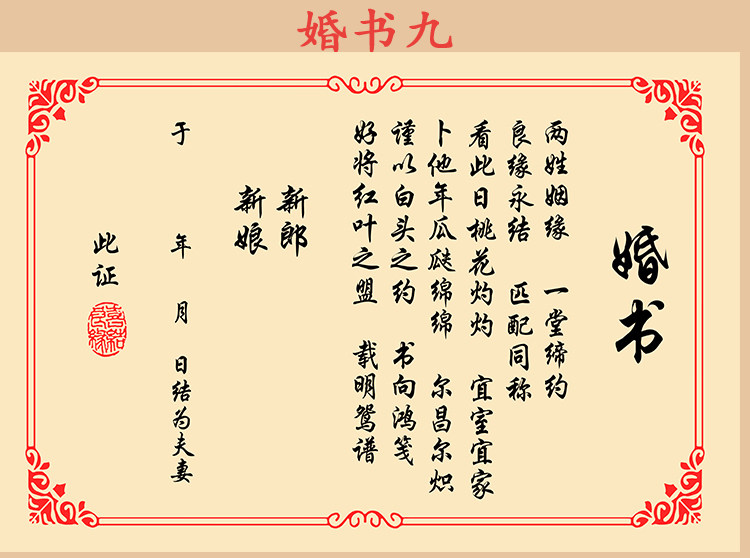 婚书九
婚书
两姓姻缘 一堂缔约
良缘永结 匹配同称
看此日桃花灼灼 宜室宜家
卜他年瓜瓞绵绵 尔昌尔炽
谨以白头之约 书向鸿笺
好将红叶之盟 载明鸳谱
新郎
新娘
于 年 月 日结为夫妻
此证
喜结良缘